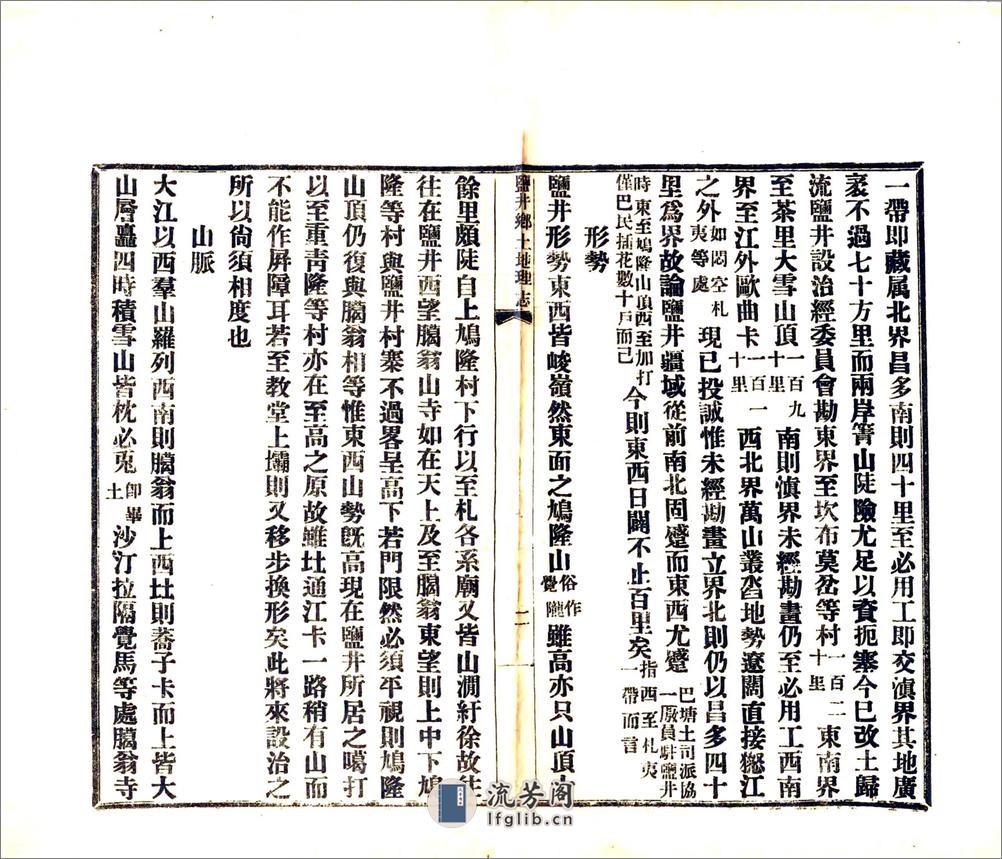 一帶即藏属北界昌多南則四十里至必用工即交滇界其地廣
袤不過七十方里而兩岸箐山陡險尤足以資扼塞今已改土歸
流鹽井設治經委員會勘東界至坎布莫岔等村一百二十里東南界
至茶里大雪山頂一百九十里南則滇界未經勘畫仍至必用工西南
界至江外歐曲卡一百一十里西北界萬山叢沓地勢遼闊直接猔江
之外如悶空札夷等處現已投誠惟未經勘畫立界北則仍以昌多四十
里爲界故論鹽井疆域從前南北固蹙而東西尤蹙巴塘土司派協廒員駐鹽井一
時東至鳩隆山頂西至加打僅巴民插花數十戶而已今則東西日闢不止百里矣指西至札夷一帶而言
形勢
鹽井形勢東西皆峻嶺然東面之鳩隆山俗作覺隴雖高亦只山頂十
鹽井鄉土地理志
二
餘里頗陡自上鳩隆村下行以至札各系廟又皆山澗紆徐故往
往在鹽井西望臈翁山寺如在天上及至臈翁東望則上中下鳩
隆等村與鹽井村寨不過畧呈高下若門限然必須平視則鳩隆
山頂仍復與臈翁相等惟東西山勢既高現在鹽井所居之噶打
以至重青隆等村亦在至高之原故雖圵通江卡一路稍有山而
不能作屏障耳若至教堂上壩則又移步換形矣此將來設治之
所以尙須相度也
山脈
大江以西羣山羅列西南則臈翁而上西圵則蕎子卡而上皆大
山層矗四時積雪山皆枕必兎即畢土沙汀拉隔覺馬等處臈翁寺
流芳阁
lfglib.cn